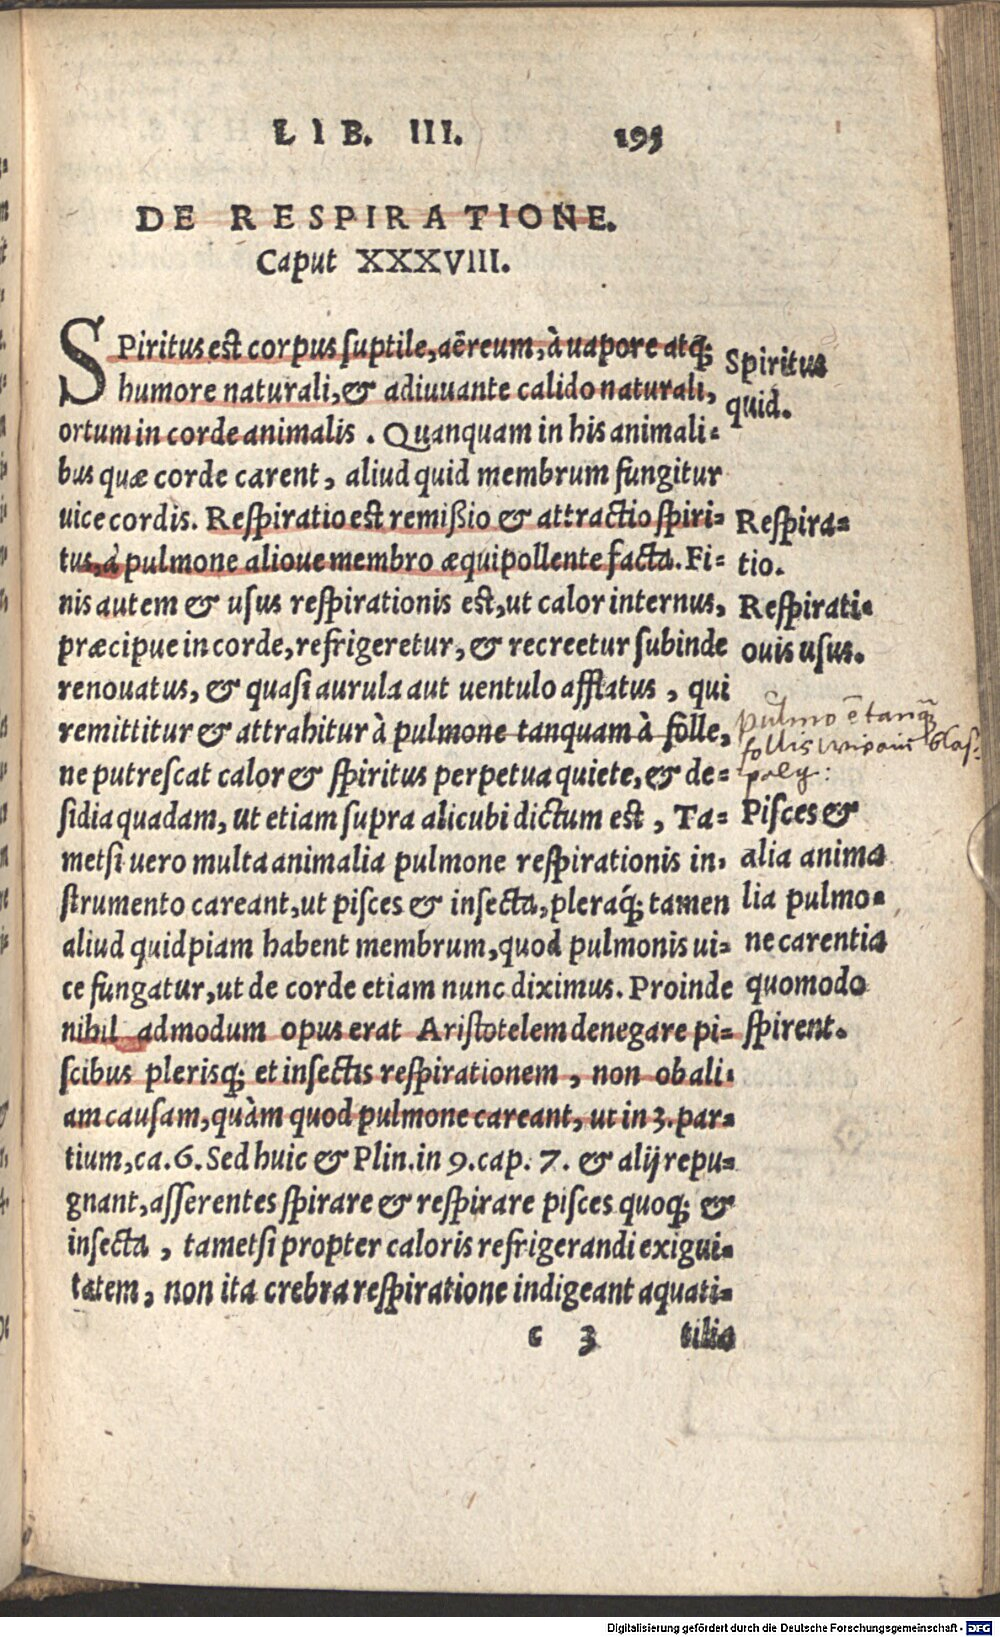 LIB. III. 195
DE RESPIRATIONE.
Caput XXXVIII.
SPiritus est corpus suptile, aëreum, à uapore atq́;
humore naturali, & adiuuante calido naturali,
ortum in corde animalis. Quanquam in his animali-
bus quæ corde carent, aliud quid membrum fungitur
uice cordis. Respiratio est remißio & attractio spiri-
tus, à pulmone alioue membro æquipollente facta. Fi-
nis autem & usus respirationis est, ut calor internus,
præcipue in corde, refrigeretur, & recreetur subinde
renouatus, & quasi aurula aut uentulo afflatus, qui
remittitur & attrahitur à pulmone tanquam à folle,
ne putrescat calor & spiritus perpetua quiete, & de-
sidia quadam, ut etiam supra alicubi dictum est, Ta-
metsi uero multa animalia pulmone respirationis in-
strumento careant, ut pisces & insecta, pleraq́; tamen
aliud quidpiam habent membrum, quod pulmonis ui-
ce fungatur, ut de corde etiam nunc diximus. Proinde
nihil admodum opus erat Aristotelem denegare pi-
scibus plerisq; et insectis respirationem, non ob ali-
am causam, quàm quod pulmone careant, ut in 3. par-
tium, ca. 6. Sed huic & Plin. in 9. cap. 7. & alij repu-
gnant, asserentes spirare & respirare pisces quoq; &
insecta, tametsi propter caloris refrigerandi exigui-
tatem, non ita crebra respiratione indigeant aquati-
c 3 tilia
Spiritus
quid.
Respira-
tio.
Respirati-
onis usus.
pulmo ē tanq̃
follis
Pisces &
alia anima
lia pulmo-
ne carentia
quomodo
spirent.
Digitalisierung gefördert durch die Deutsche Forschungsgemeinschaft - DFG